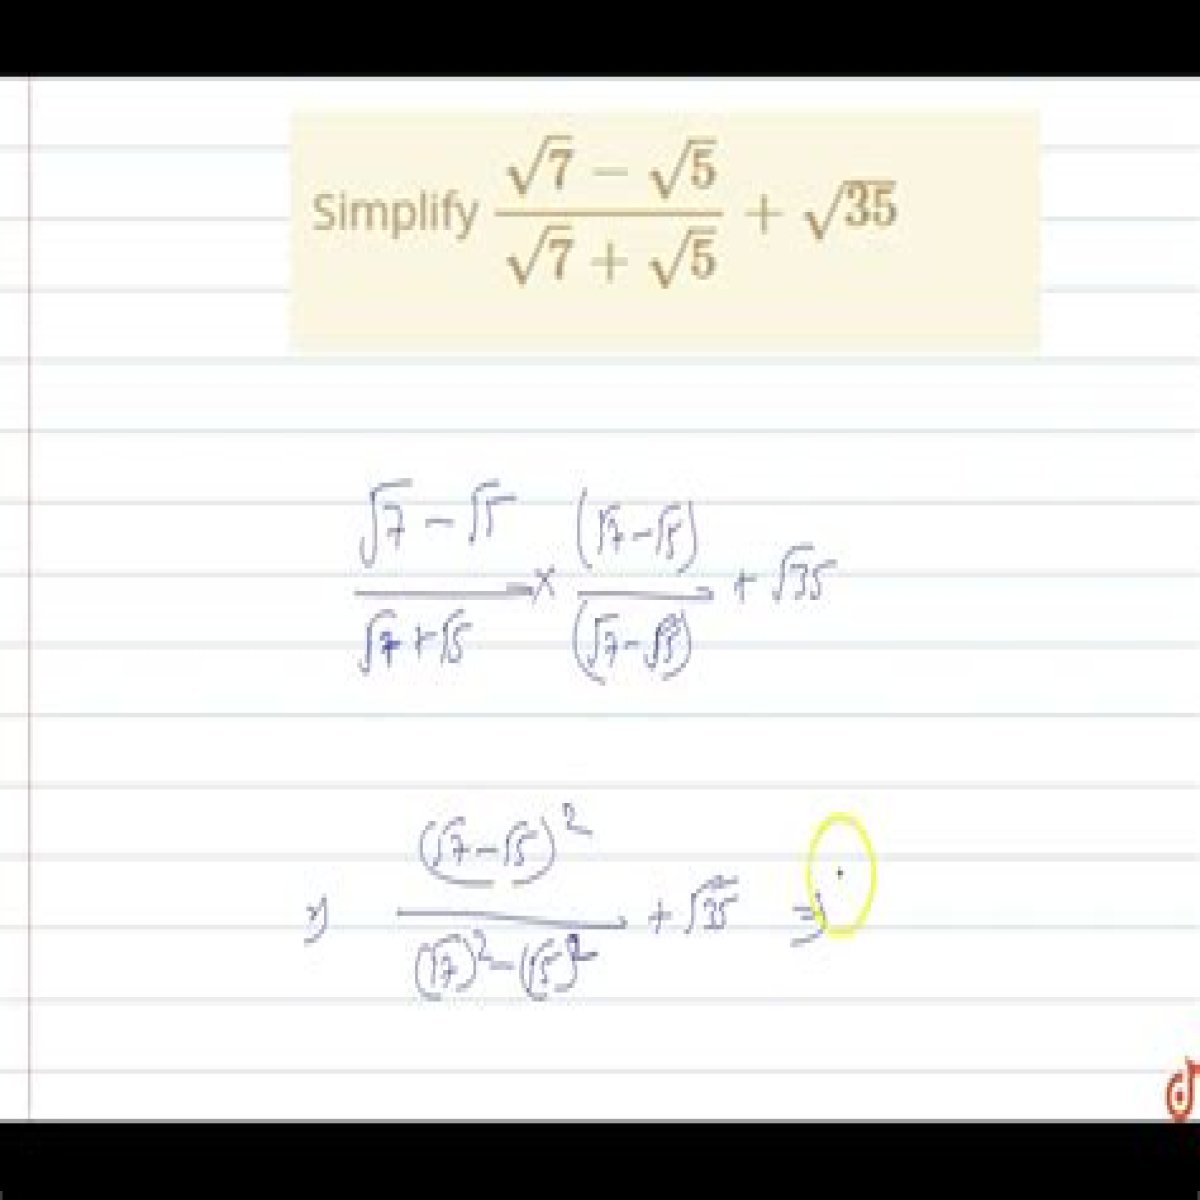 Simplify (√7 − √5)/(√7 + √5) + √35
(√7 − √5)/(√7 + √5) × (√7 − √5)/(√7 − √5) + √35
⇒ (√7 − √5)²/((√7)² − (√5)²) + √35 ⇒